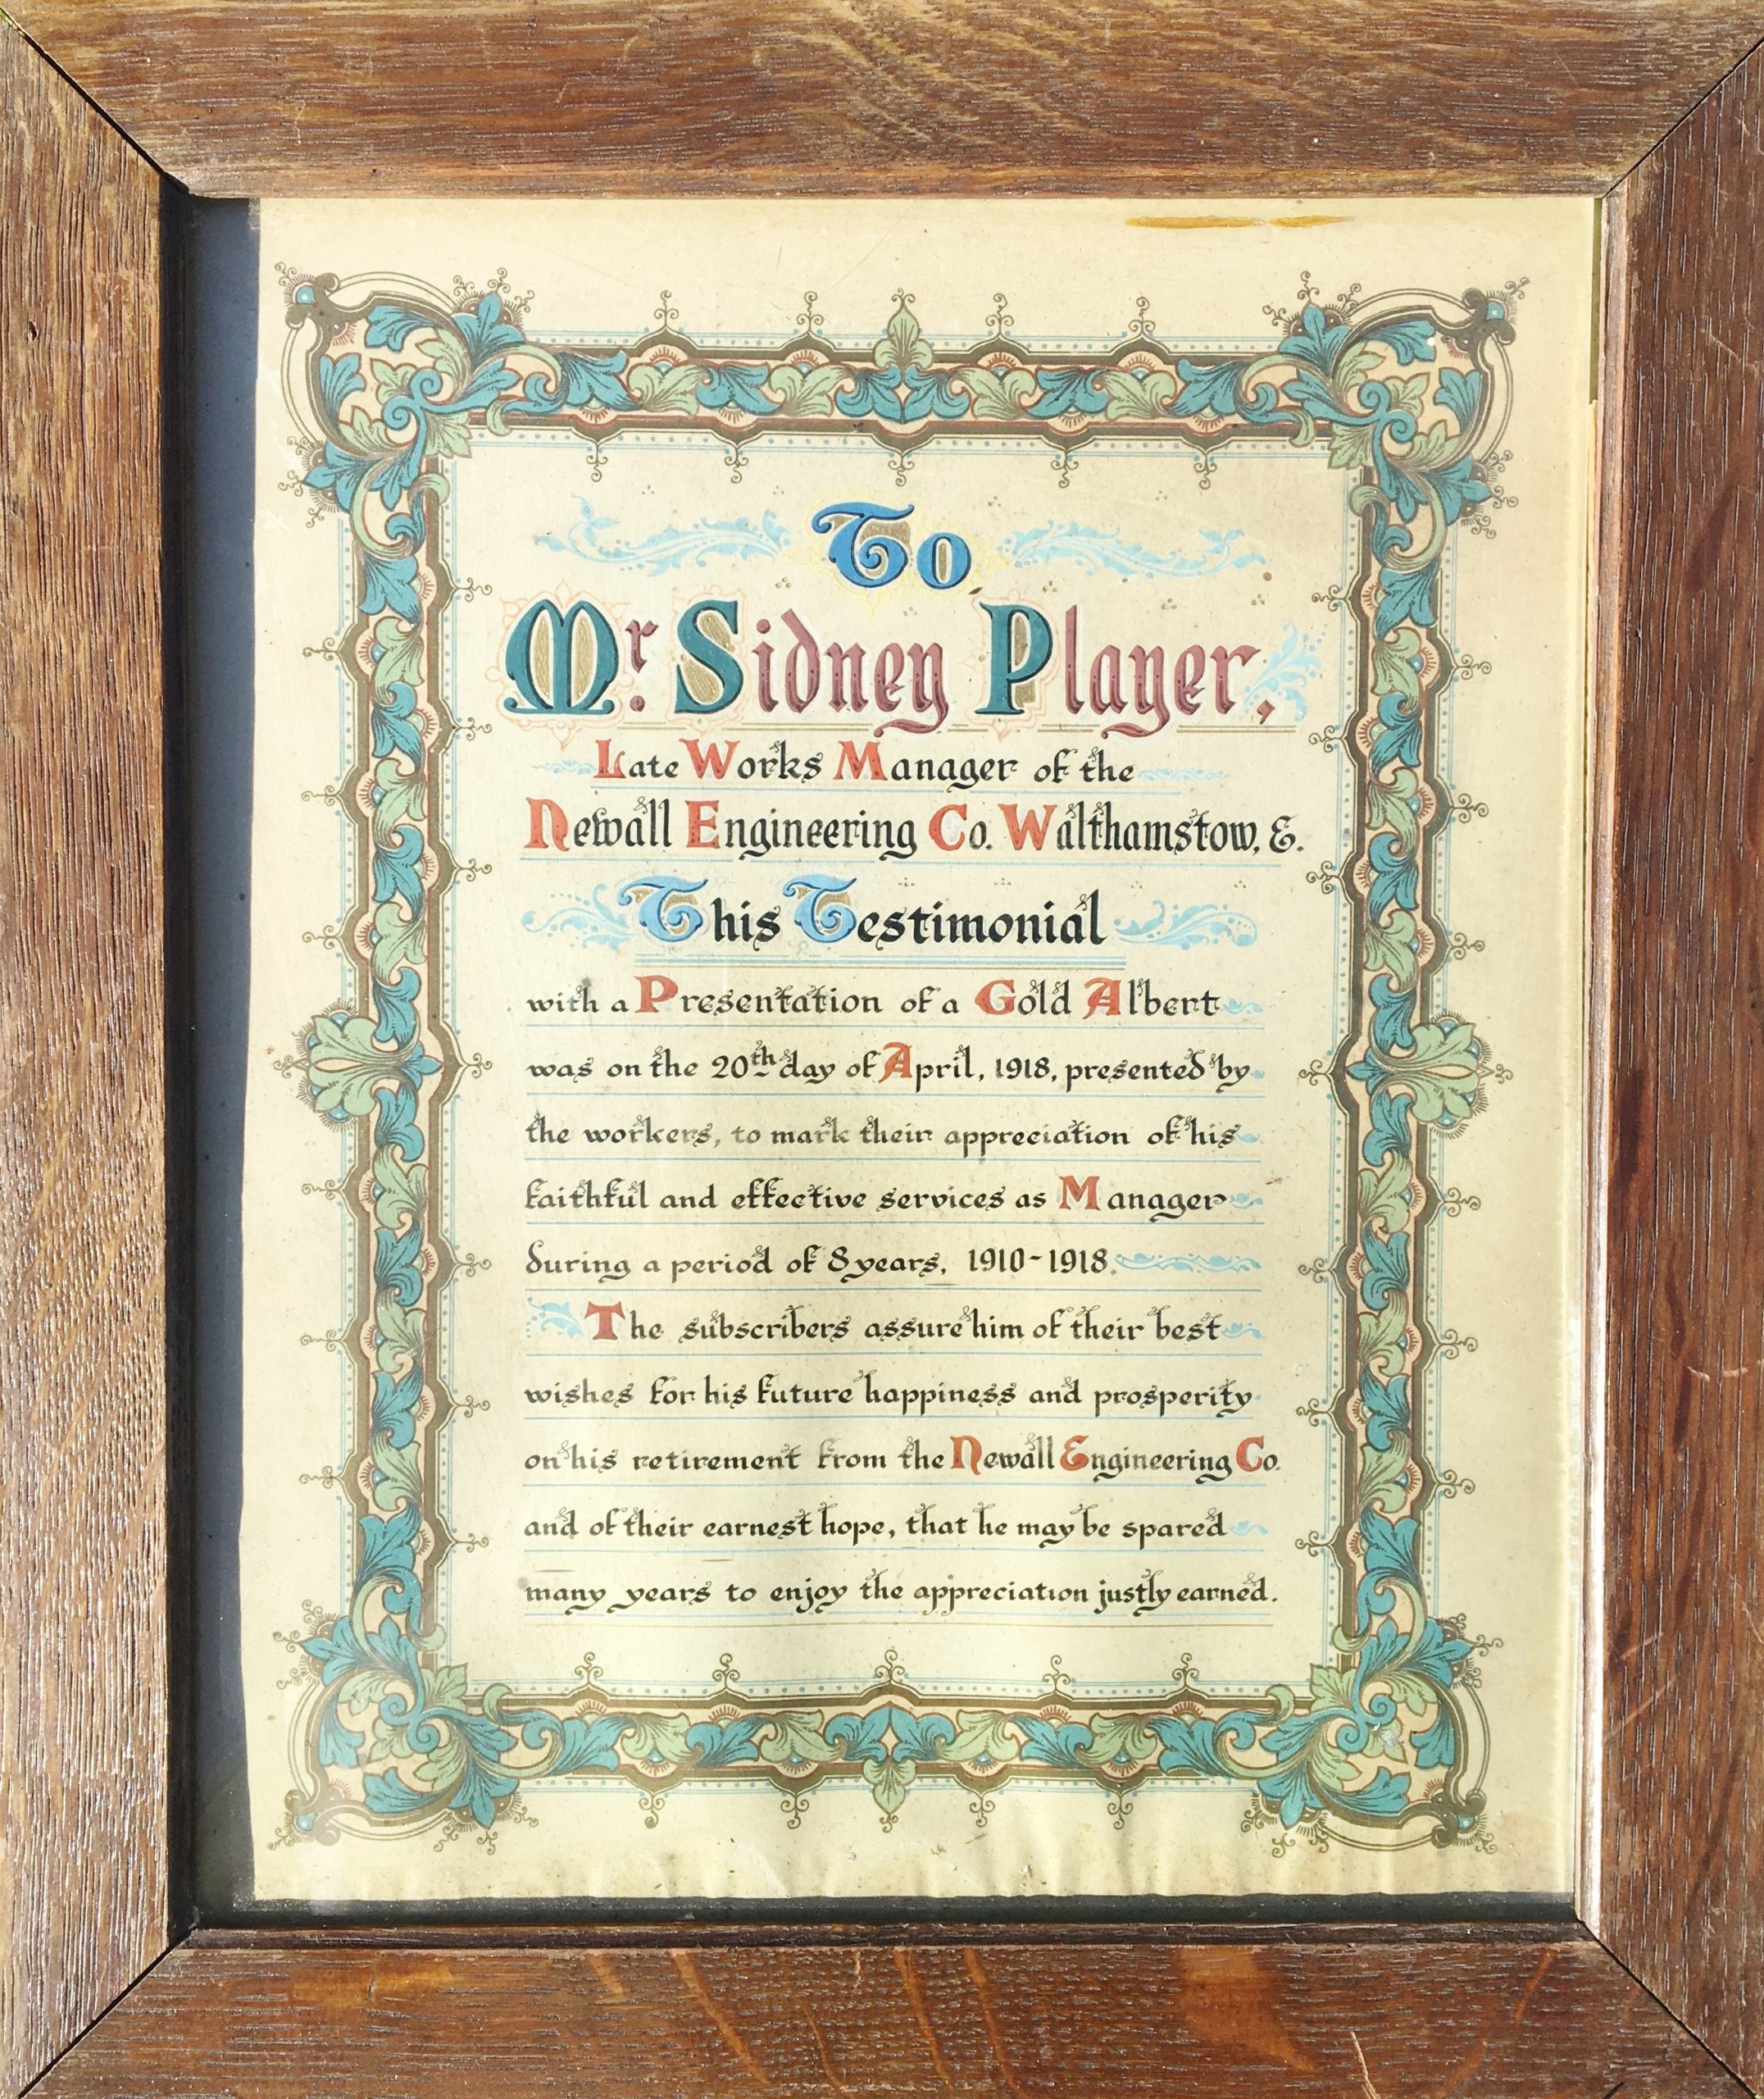 To
Mr. Sidney Player,
Late Works Manager of the
Newall Engineering Co. Walthamstow, E.
This Testimonial
with a Presentation of a Gold Albert
was on the 20th day of April, 1918, presented by
the workers, to mark their appreciation of his
faithful and effective services as Manager
during a period of 8 years, 1910-1918.
The subscribers assure him of their best
wishes for his future happiness and prosperity
on his retirement from the Newall Engineering Co.
and of their earnest hope, that he may be spared
many years to enjoy the appreciation justly earned.